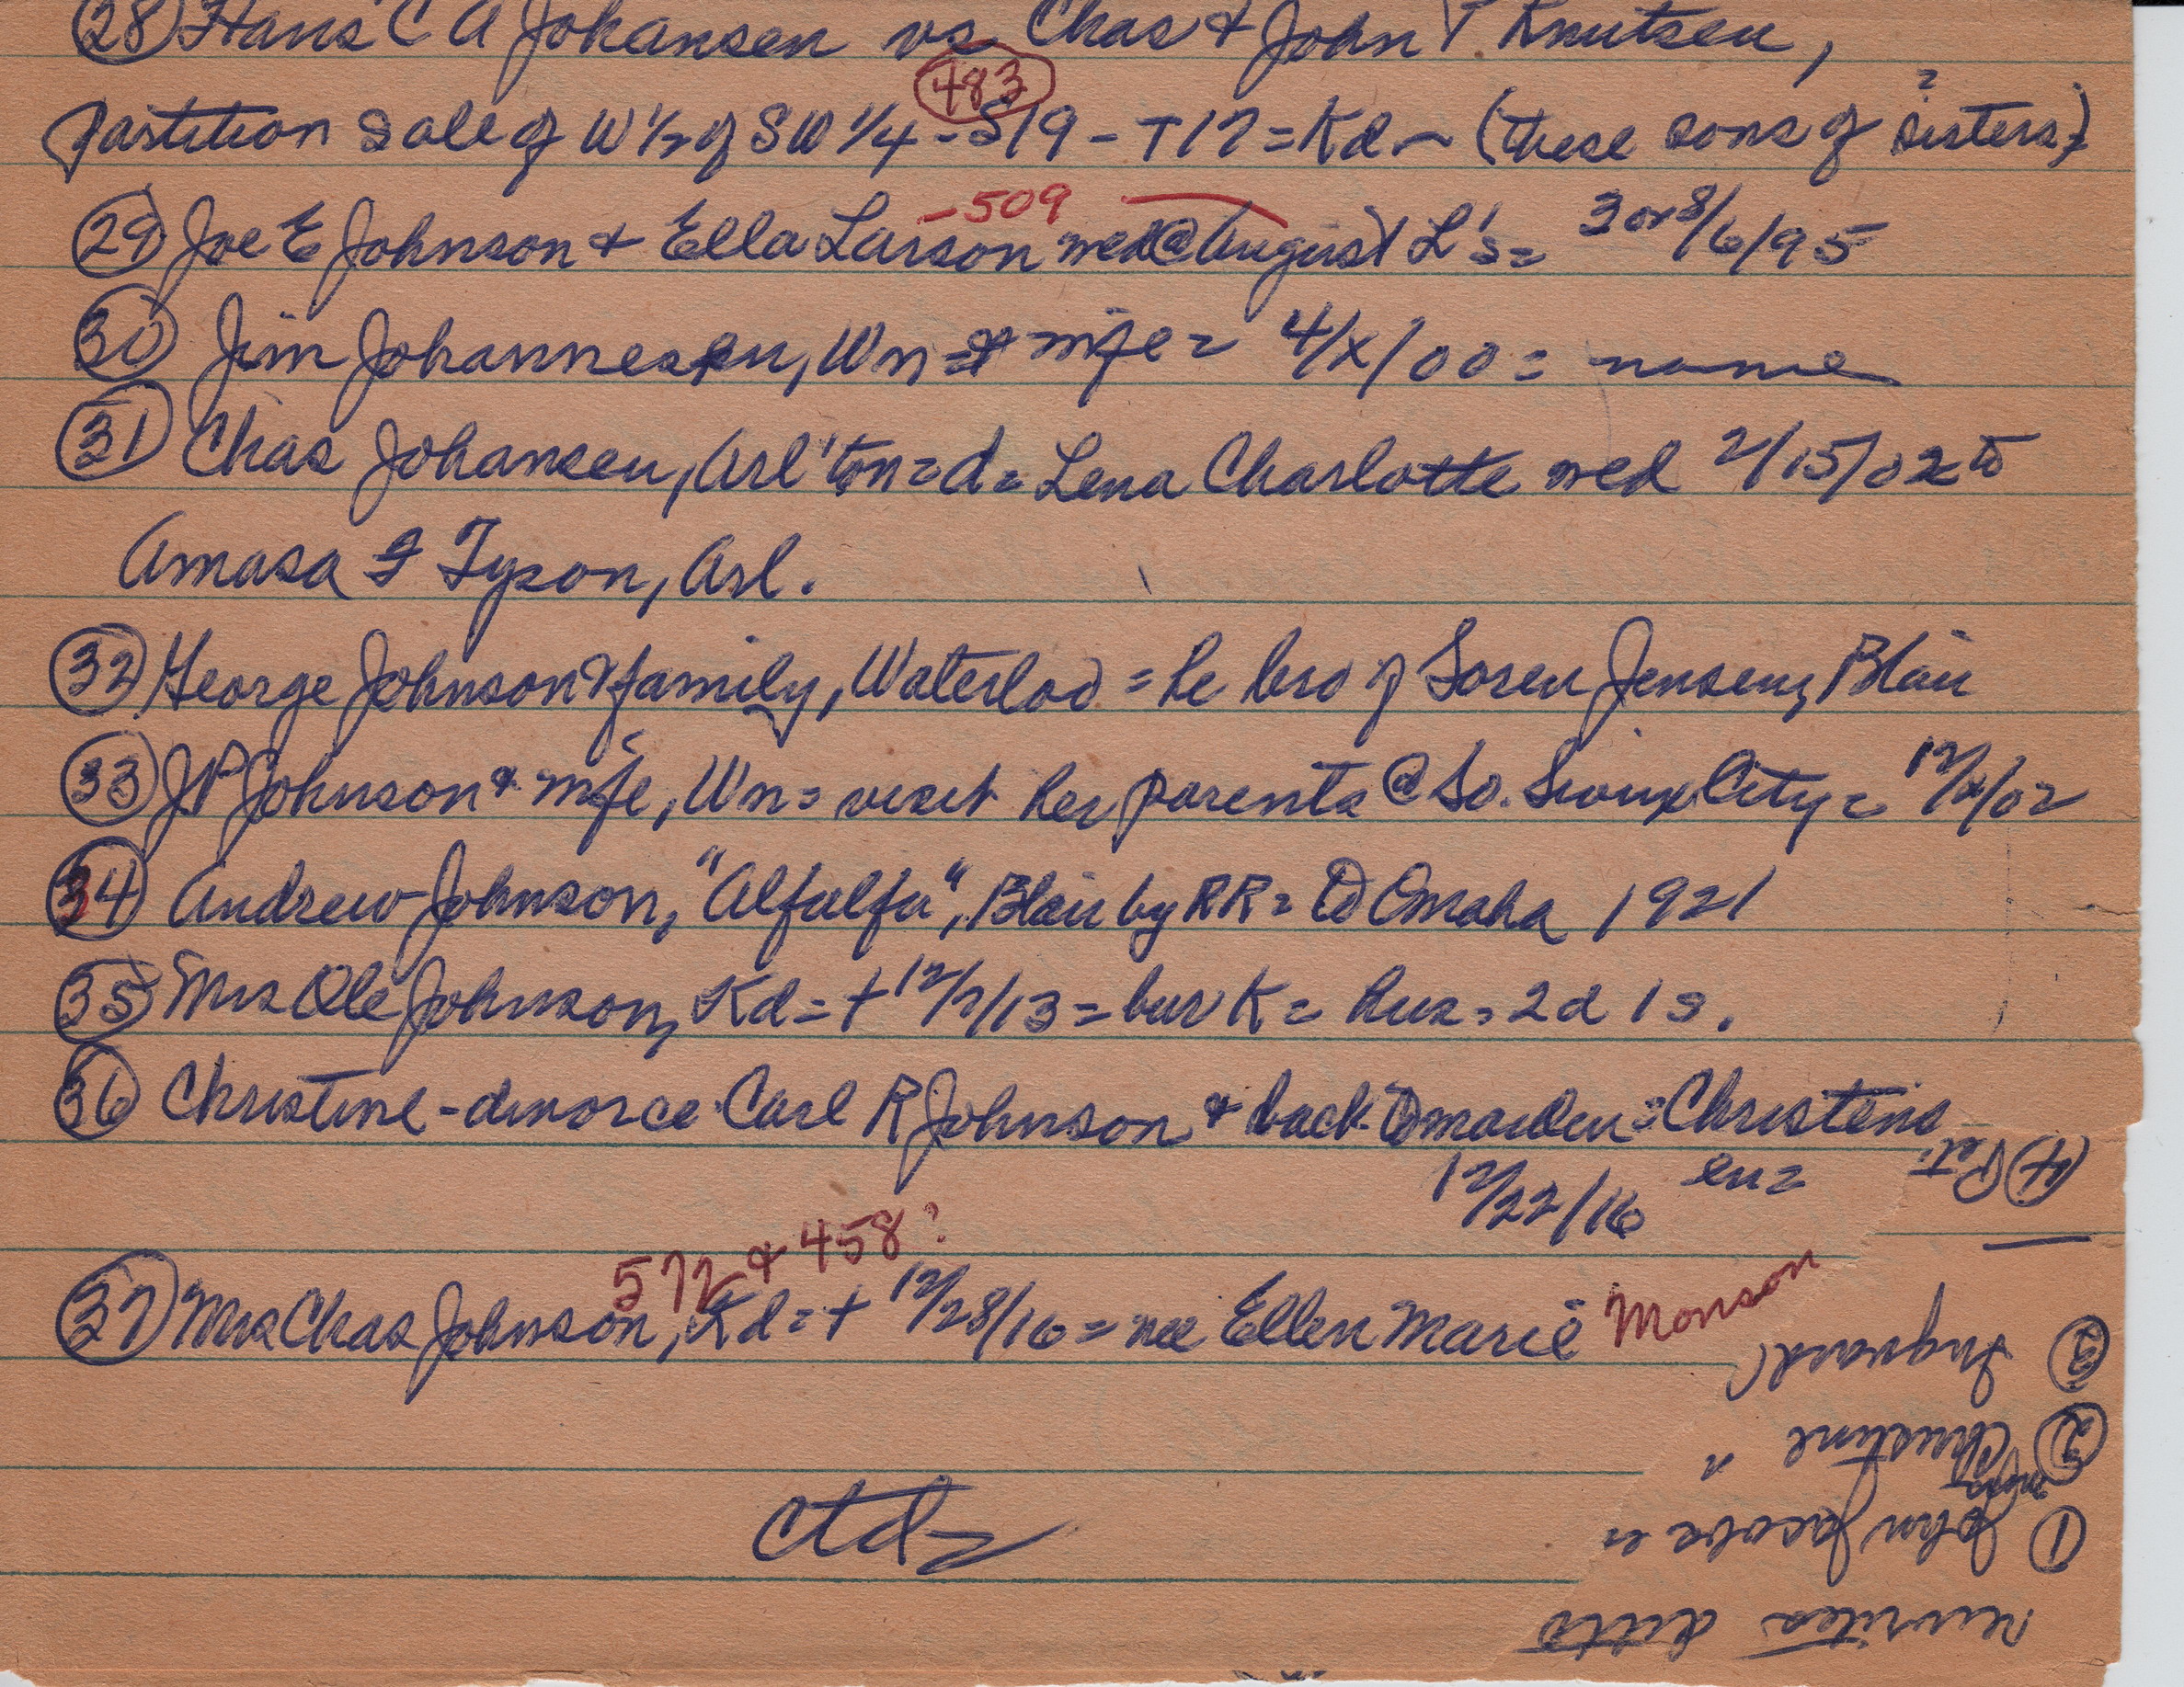 (28) Hans C A Johansen vs Chas & John T Knutsen,
(483)
Partition sale of W½ of SW¼ - S19 - T17 = Kd ~ (these sons of sisters?)
-509
(29) Joe E Johnson & Ella Larson wed @ August L's = 3 or 8/6/95
(30) Jim Johannesen, Wn = & wife = 4/x/00 = name
(31) Chas Johansen, Arl'ton = d = Lena Charlotte wed 2/15/02 to
Amasa F Tyson, Arl.
(32) George Johnson & family, Waterloo = he bro of Soren Jensen, Blair
(33) JP Johnson & wife, Wn = visit her parents @ So. Sioux City = 12/x/02
(34) Andrew Johnson, "Alfalfa", Blair by RR = to Omaha 1921
(35) Mrs Ole Johnson, Kd = + 12/7/13 = bur K = hus = 2d 1s.
(36) Christine - divorce Carl R Johnson & back to maiden = Christens
en = 12/22/16
572 & 458?
(37) Mrs Chas Johnson, Kd = + 12/28/16 = nee Ellen Marie Monson
ctd =
rewrites ditto
(1) John Jacobsen
(2) Christine "
(3) Ingvard
(4) Pet